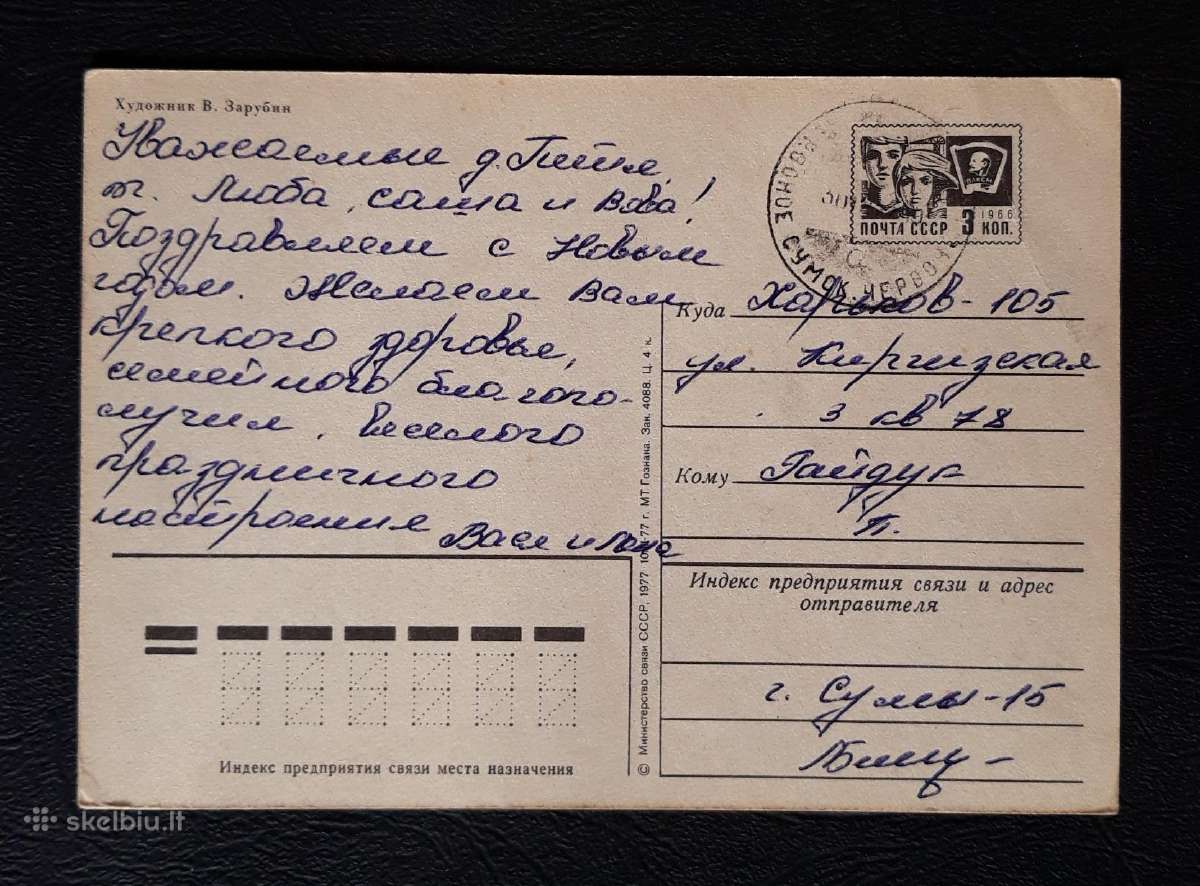 Художник В. Зарубин
Уважаемые д. Петя,
т. Люба, Саша и Вова!
Поздравляем с Новым
годом. Желаем Вам
крепкого здоровья,
семейного благопо-
лучия, веселого
праздничного
настроения
Вася и
ПОЧТА СССР 3 КОП.
1966
ВЛКСМ
Куда Харьков-105
ул. Киргизская
3 кв 78
Кому Гайдук
П.
Индекс предприятия связи и адрес
отправителя
г. Сумы-15
Индекс предприятия связи места назначения
© Министерство связи СССР, 1977 77 г. МТ Гознака. Зак. 4088. Ц. 4 к.
skelbiu.lt